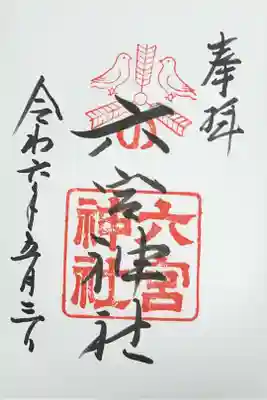 奉拝
六宮神社
六宮
神社
令和六年五月三日